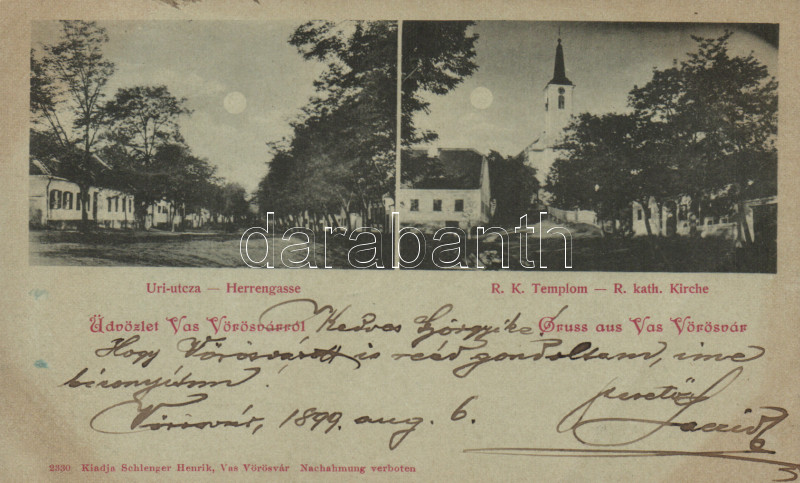 darabanth
Uri-utcza — Herrengasse
R. K. Templom — R. kath. Kirche
Üdvözlet Vas Vörösvárról
Gruss aus Vas Vörösvár
Kedves Györgyike!
Hogy Vörösvárott is reád gondoltam, ime
bizonyítom.
Vörösvár, 1899. aug. 6.
szerető
2330 Kiadja Schlenger Henrik, Vas Vörösvár Nachahmung verboten